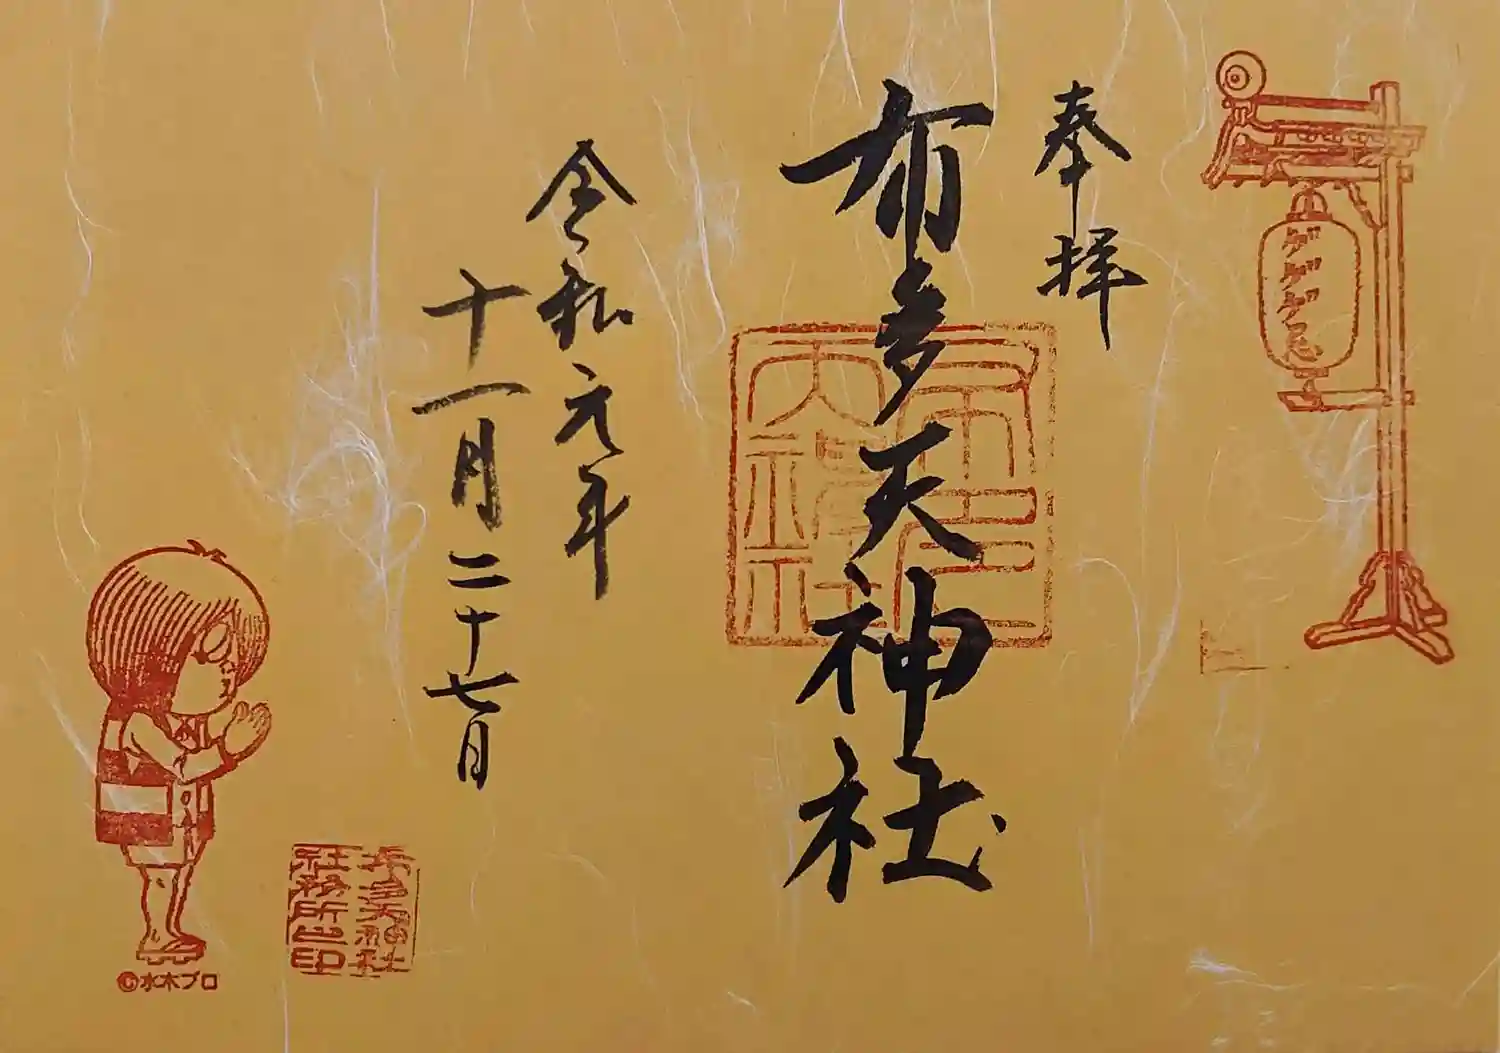 ゲゲゲ忌
奉拝
布多天神社
布多天神社
令和元年
十一月二十七日
布多天神社
社務所之印
©水木プロ